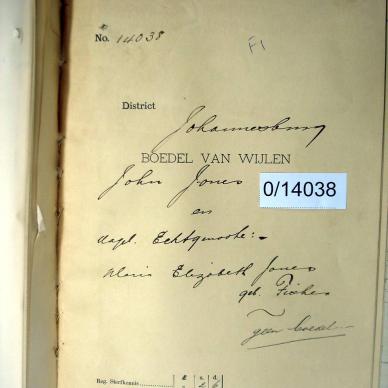 No. 14038
F1
District
Johannesburg
BOEDEL VAN WIJLEN
John Jones
0/14038
en
Echtgenoote:-
Maria Elizabeth Jones
geb. Fisher
geen boedel
Reg. Sterfkennis
£ s. d.
2 6